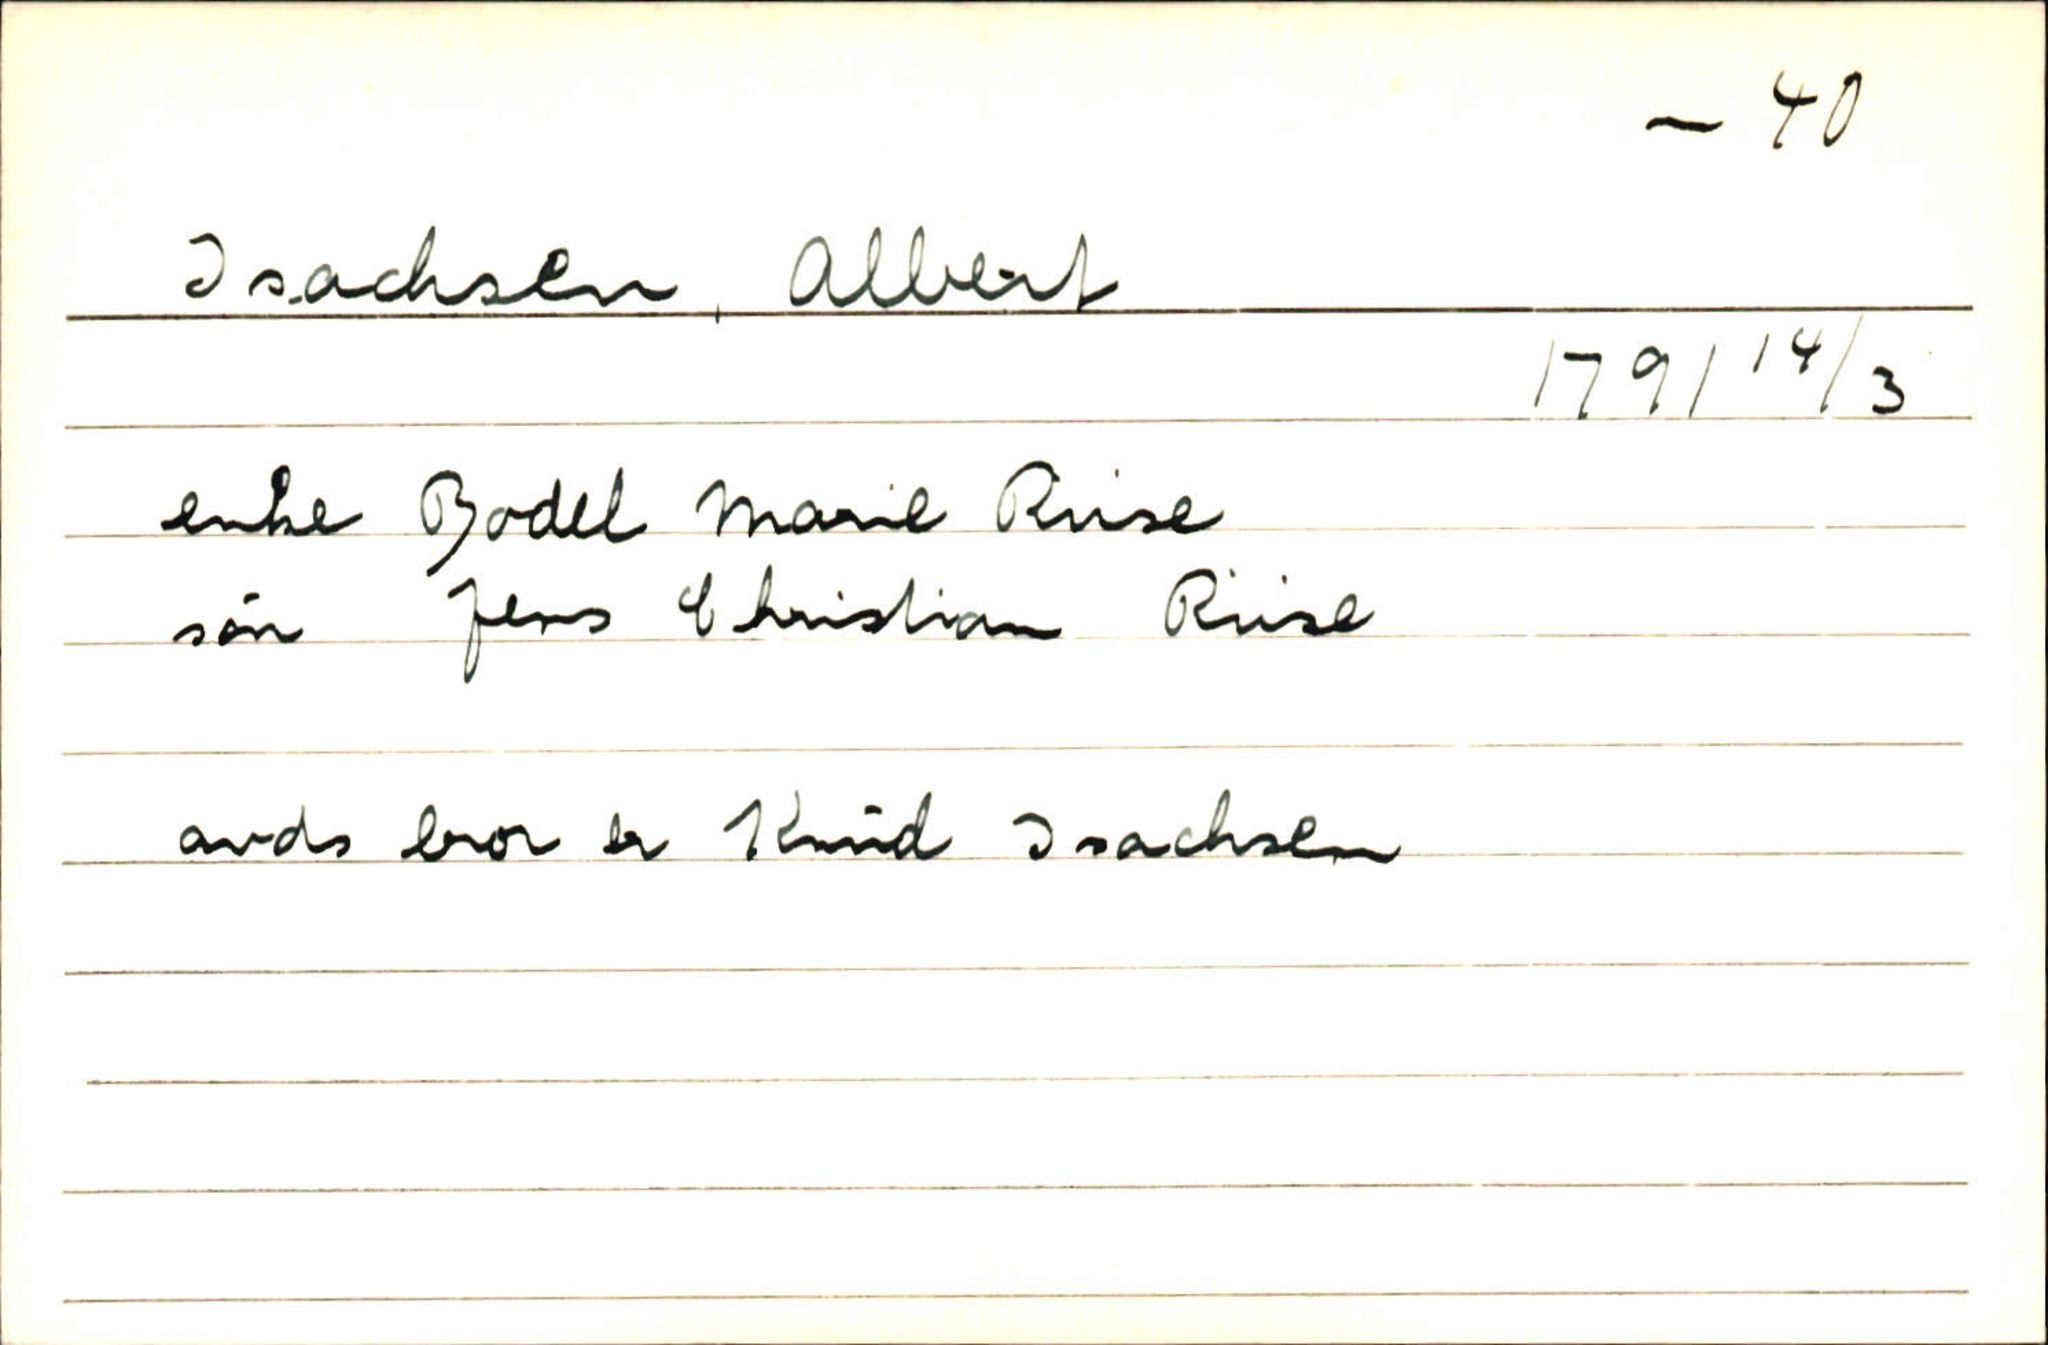 — 40
Isachsen, Albert
1791 14/3
enke Bodel Marie Riise
søn Jens Christian Riise
avds bror er Knud Isachsen